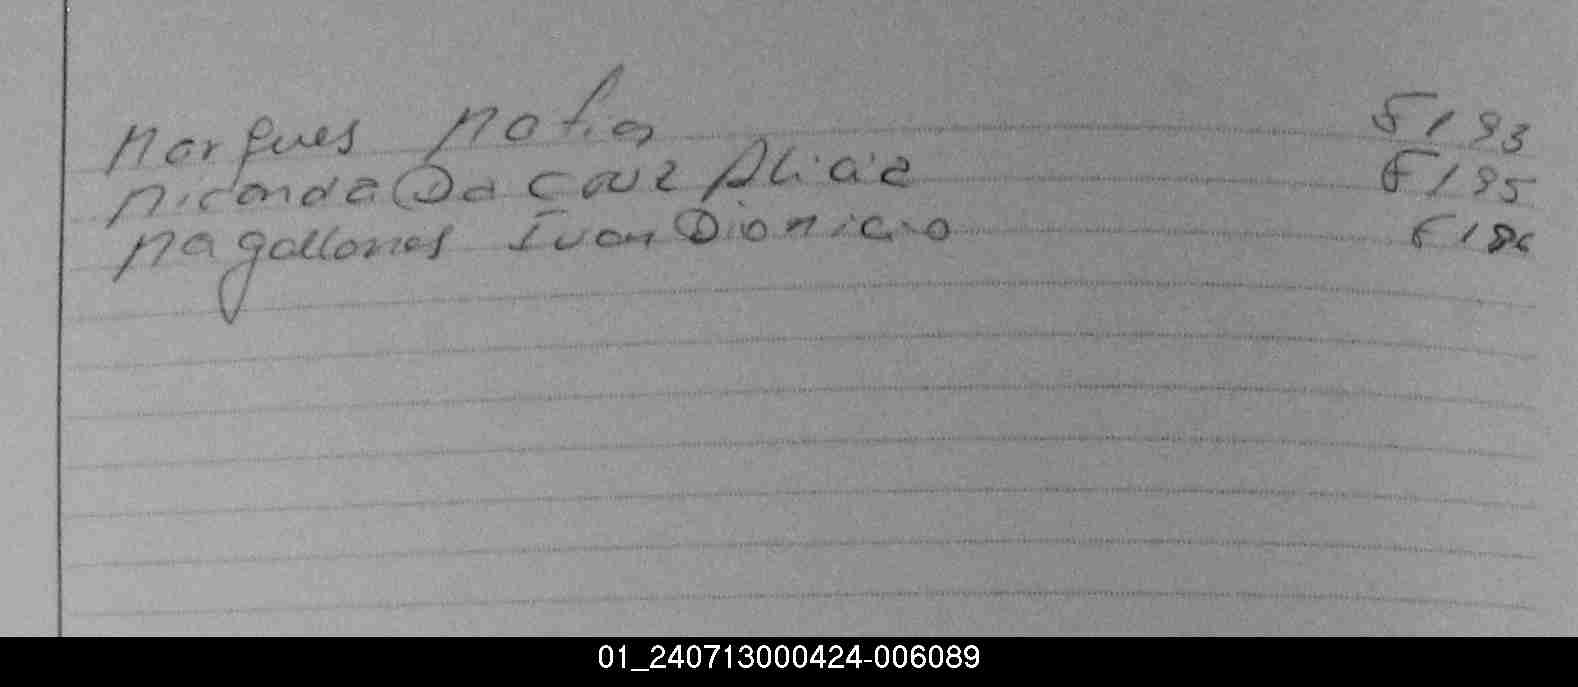 Marques Matias F193
Miranda Da Cruz Alicia F195
Magallanes Ivan Dionicio F196
01_240713000424-006089